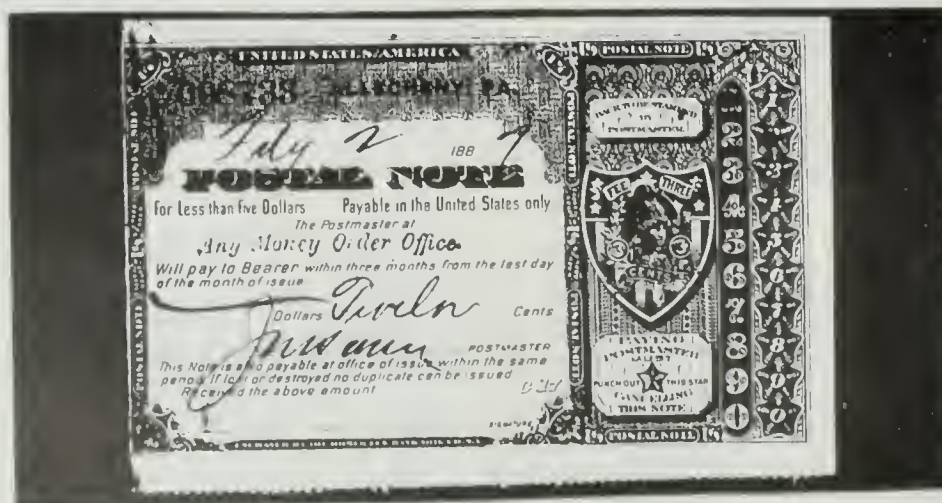 UNITED STATES AMERICA
ALLEGHENY PA.
2 1887
POSTAL NOTE
For Less than five Dollars Payable in the United States only
The Postmaster at
Any Money Order Office
Will pay to Bearer within three months from the last day
of the month of issue
Dollars Twelve Cents
POSTMASTER
This Note is also payable at office of issue within the same
period. If lost or destroyed no duplicate can be issued
Received the above amount
POSTAL NOTE
BACK TO BE STAMPED
BY
POSTMASTER
FEE THREE
3 3
CENTS
PAYING
POSTMASTER
MUST
PUNCH OUT THIS STAR
CANCELLING
THIS NOTE
POSTAL NOTE
1 1
2 2
3 3
4 4
5 5
6 6
7 7
8 8
9 9
0 0